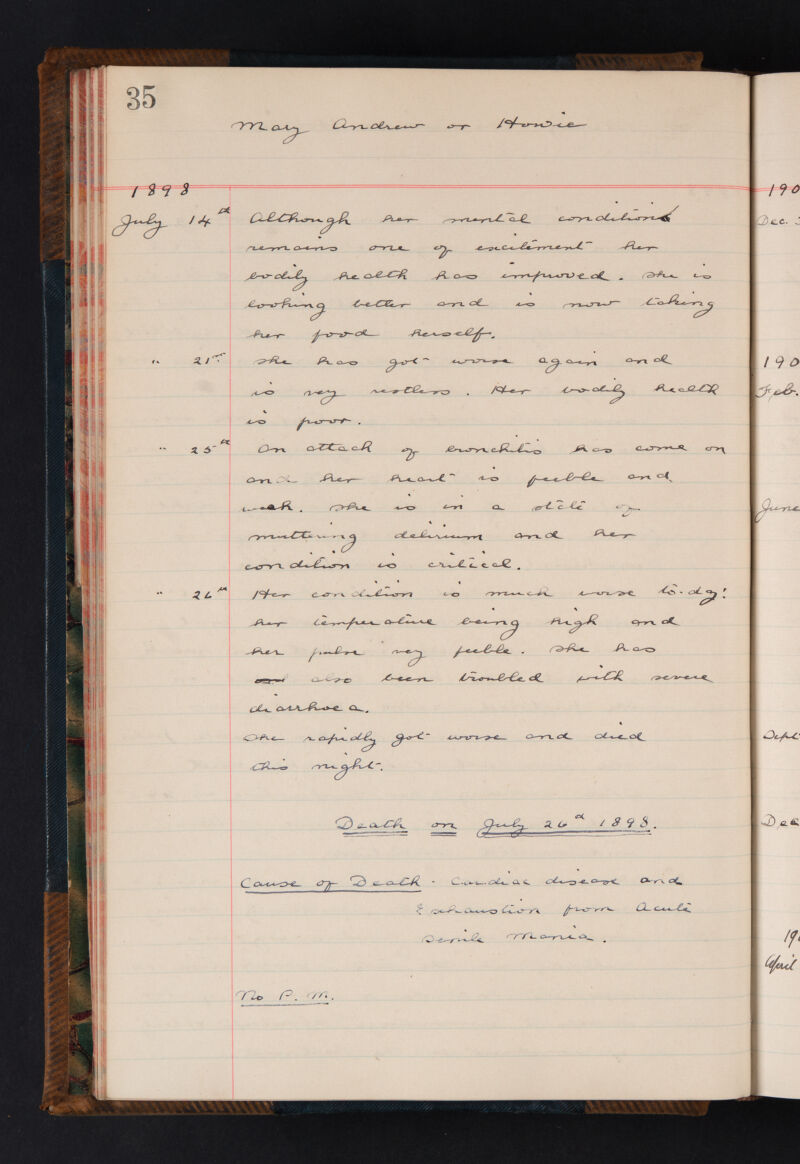 35
Mary Andrew or Howie
1898
July 14th Although her mental condition
remains one of excitement her
bodily health has improved. She is
looking better and is now taking
her food herself.
" 21st She has got worse again and
is very restless. Her bodily health
is poor.
" 25th An attack of bronchitis has come on
and her heart is feeble and
weak. She is in a state of
muttering delirium and her
condition is critical.
" 26th Her condition is much worse to-day:
her temperature being high and
her pulse very feeble. She has
also been troubled with severe
diarrhoea.
She rapidly got worse and died
this night.
Death on July 26th 1898.
Cause of Death - Cardiac disease and
Exhaustion from Acute
Senile Mania.
No P. M.
190
Dec.
190
Feb.
June
Sept
Dec
19
April